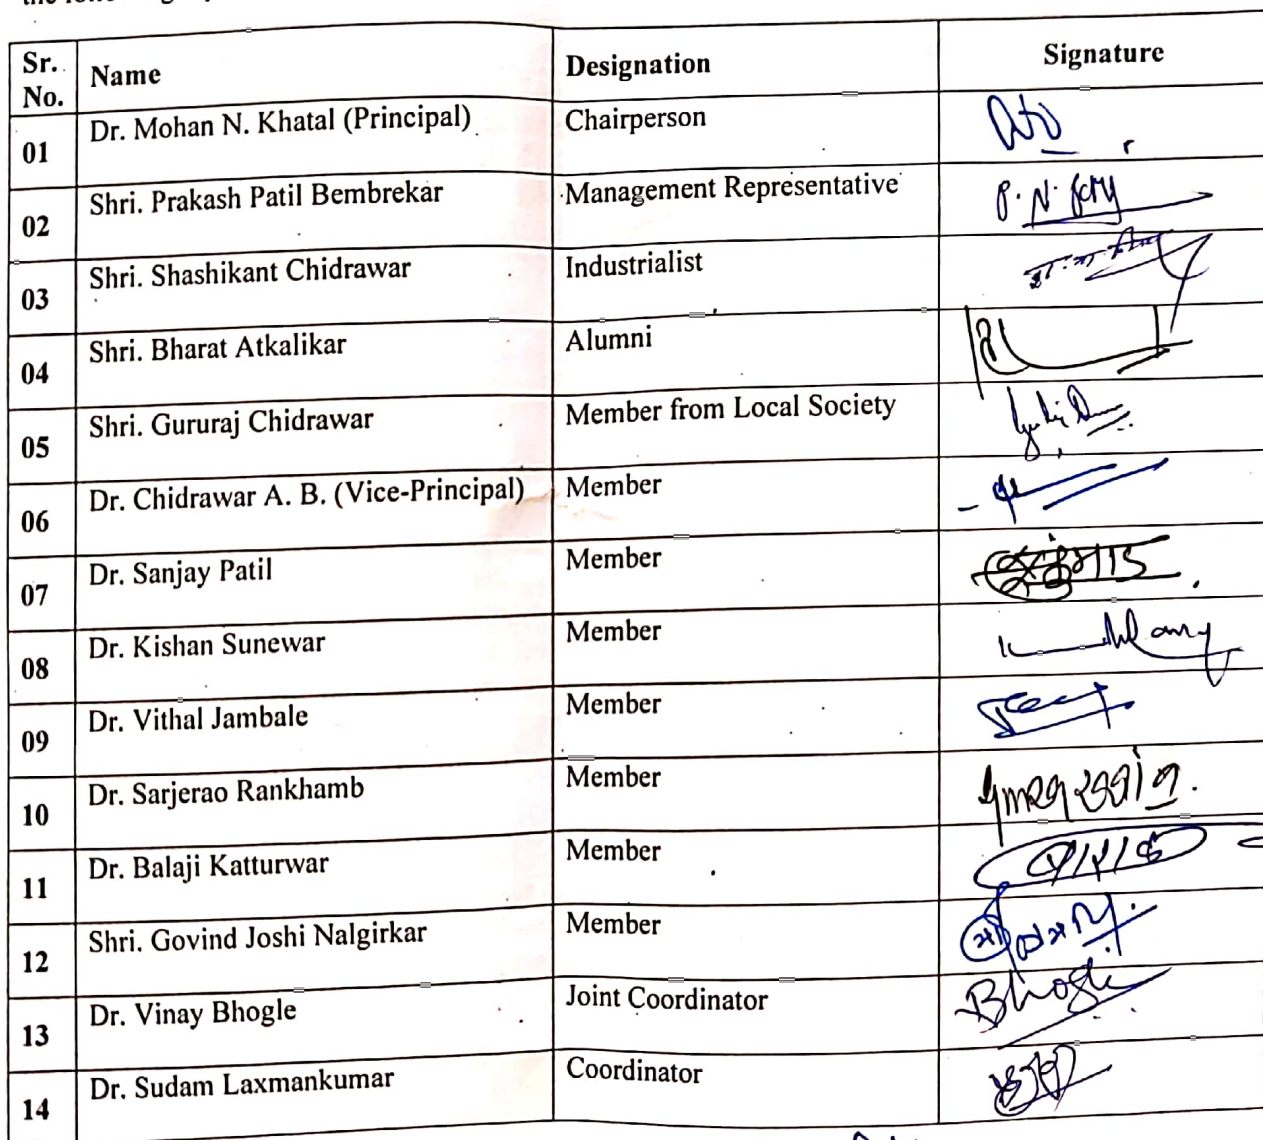 Sr. No. Name Designation Signature
01 Dr. Mohan N. Khatal (Principal) Chairperson
02 Shri. Prakash Patil Bembrekar Management Representative P. N.
03 Shri. Shashikant Chidrawar Industrialist
04 Shri. Bharat Atkalikar Alumni
05 Shri. Gururaj Chidrawar Member from Local Society
06 Dr. Chidrawar A. B. (Vice-Principal) Member
07 Dr. Sanjay Patil Member
08 Dr. Kishan Sunewar Member
09 Dr. Vithal Jambale Member
10 Dr. Sarjerao Rankhamb Member
11 Dr. Balaji Katturwar Member
12 Shri. Govind Joshi Nalgirkar Member
13 Dr. Vinay Bhogle Joint Coordinator Bhogle
14 Dr. Sudam Laxmankumar Coordinator